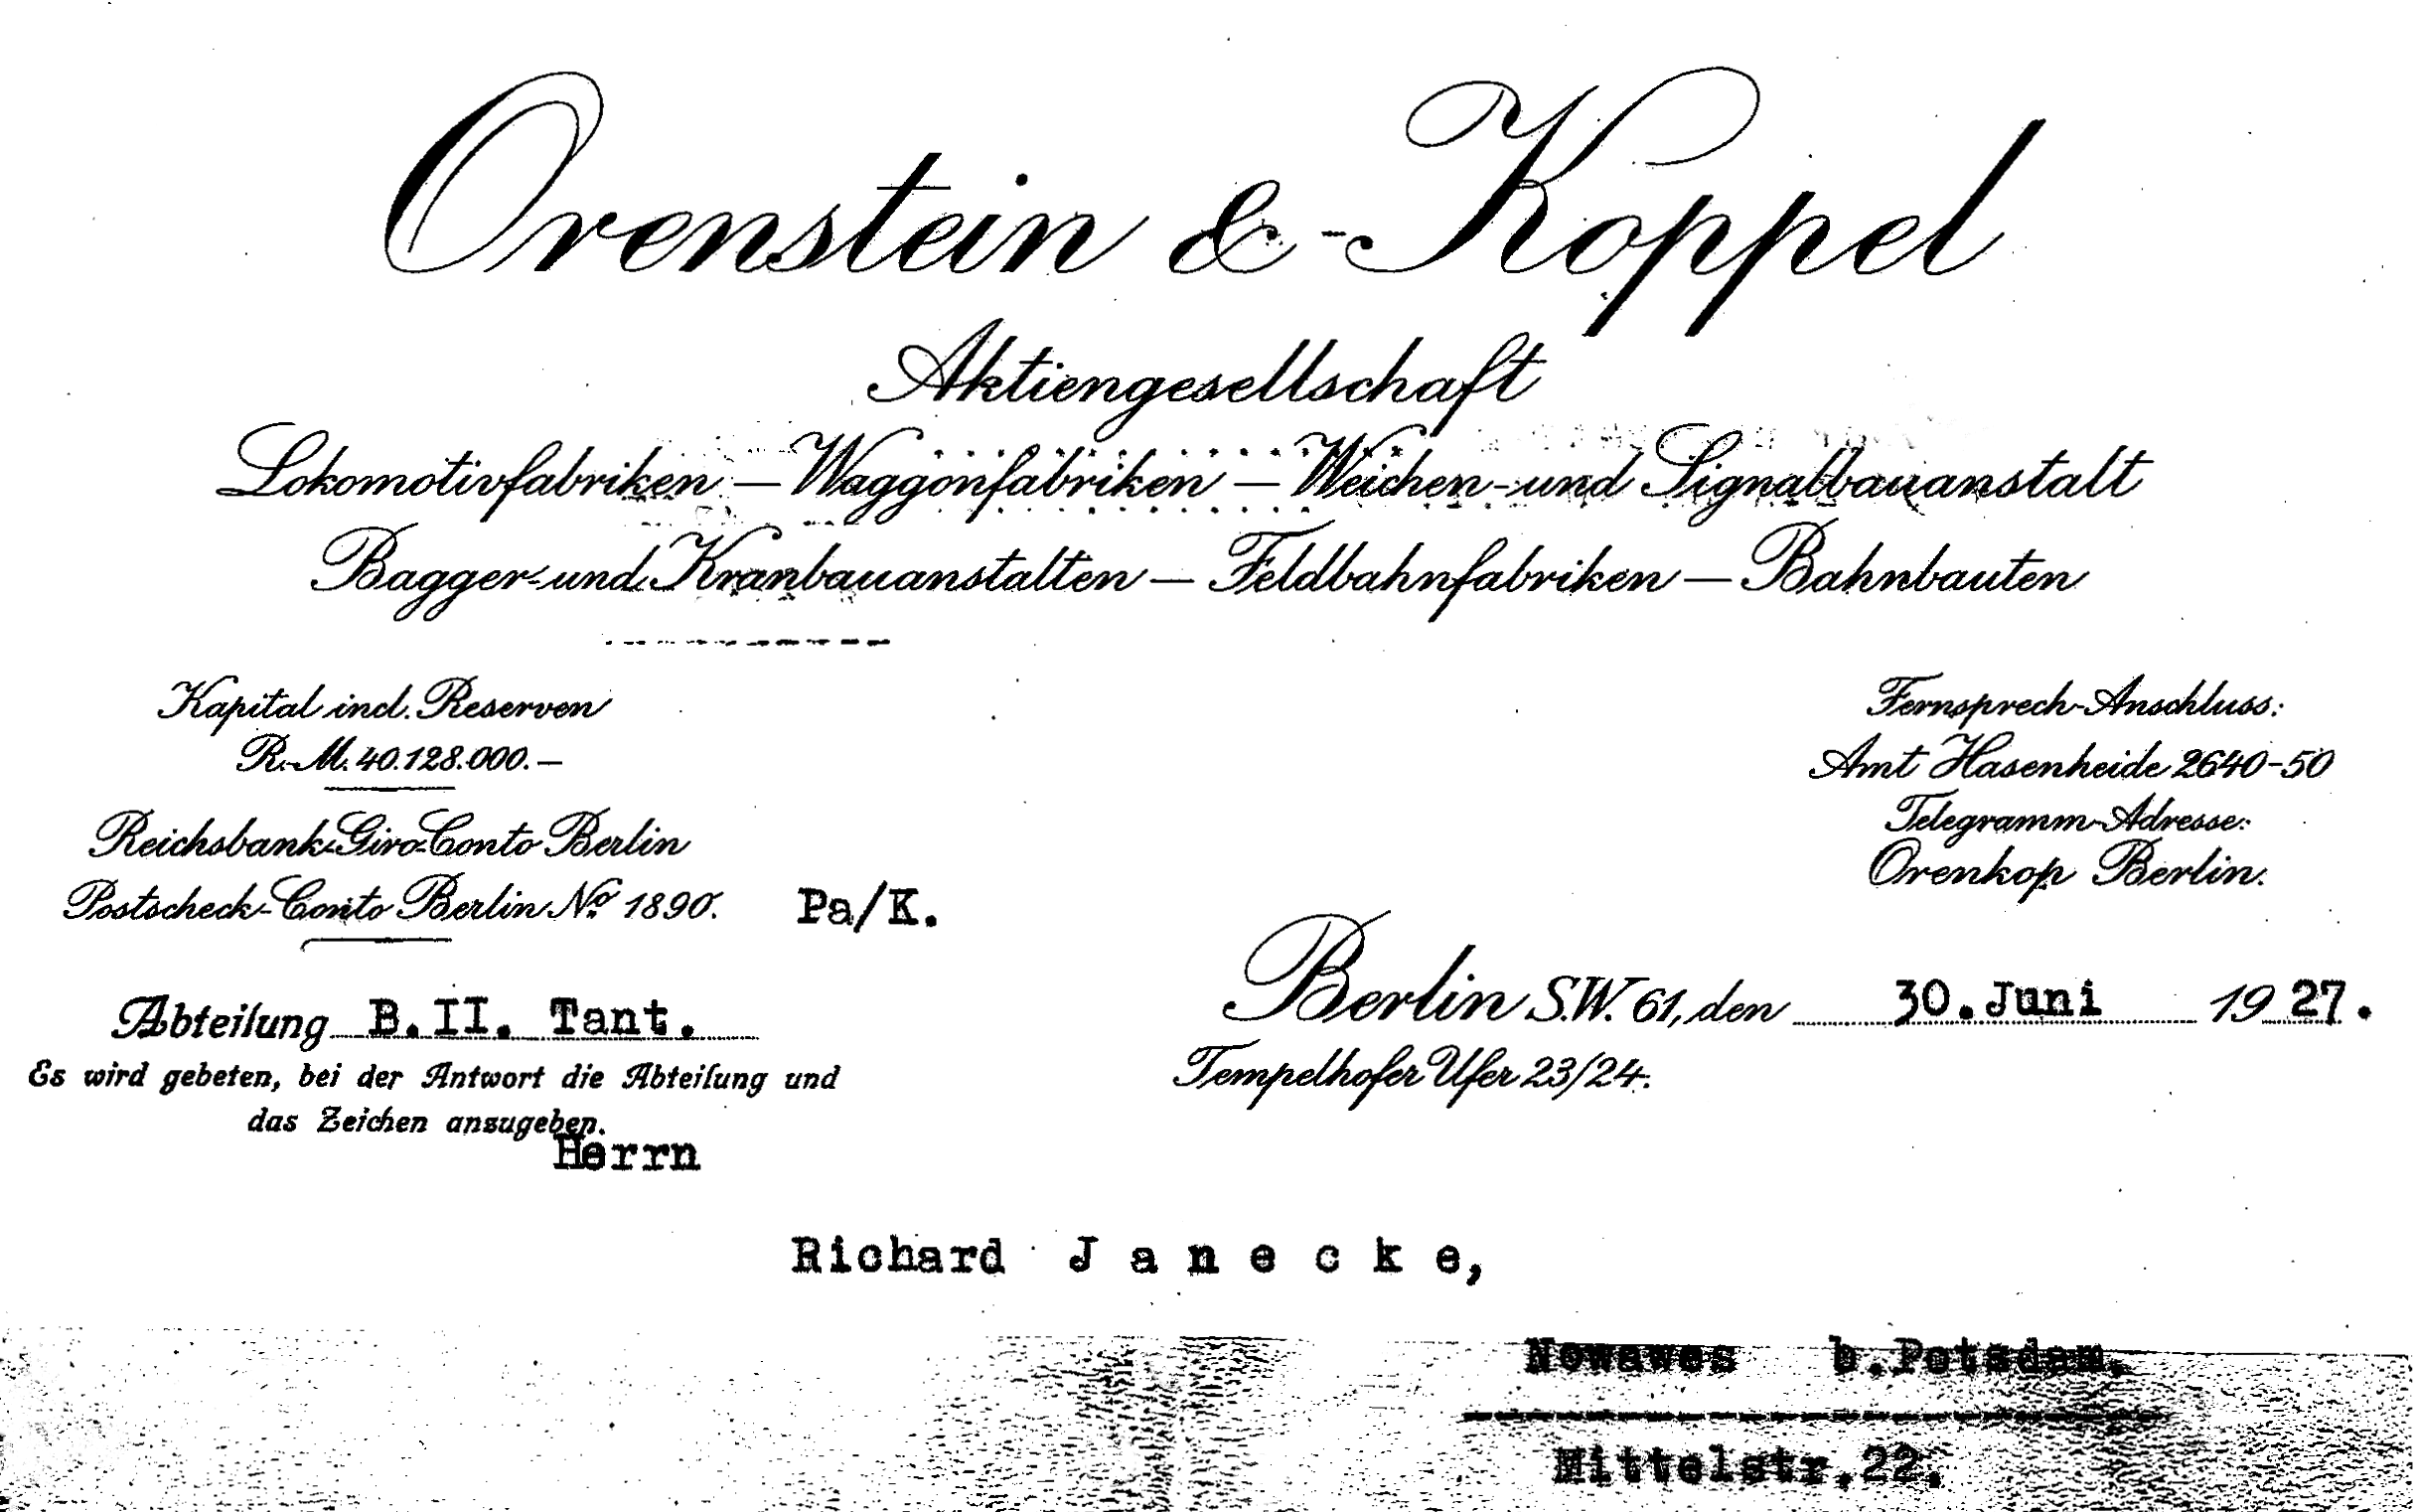 Orenstein & Koppel
Aktiengesellschaft
Lokomotivfabriken — Waggonfabriken — Weichen- und Signalbauanstalt
Bagger- und Kranbauanstalten — Feldbahnfabriken — Bahnbauten
Kapital incl. Reserven
R.-M. 40.128.000.—
Reichsbank-Giro-Conto Berlin
Postscheck-Conto Berlin No. 1890.
Fernsprech-Anschluss:
Amt Hasenheide 2640-50
Telegramm-Adresse:
Orenkop Berlin.
Pa/K.
Abteilung B.II. Tant.
Es wird gebeten, bei der Antwort die Abteilung und
das Zeichen anzugeben.
Berlin S.W. 61, den 30.Juni 1927.
Tempelhofer Ufer 23/24.
Herrn
Richard J a n e c k e,
Nowawes b.Potsdam.
Mittelstr.22.